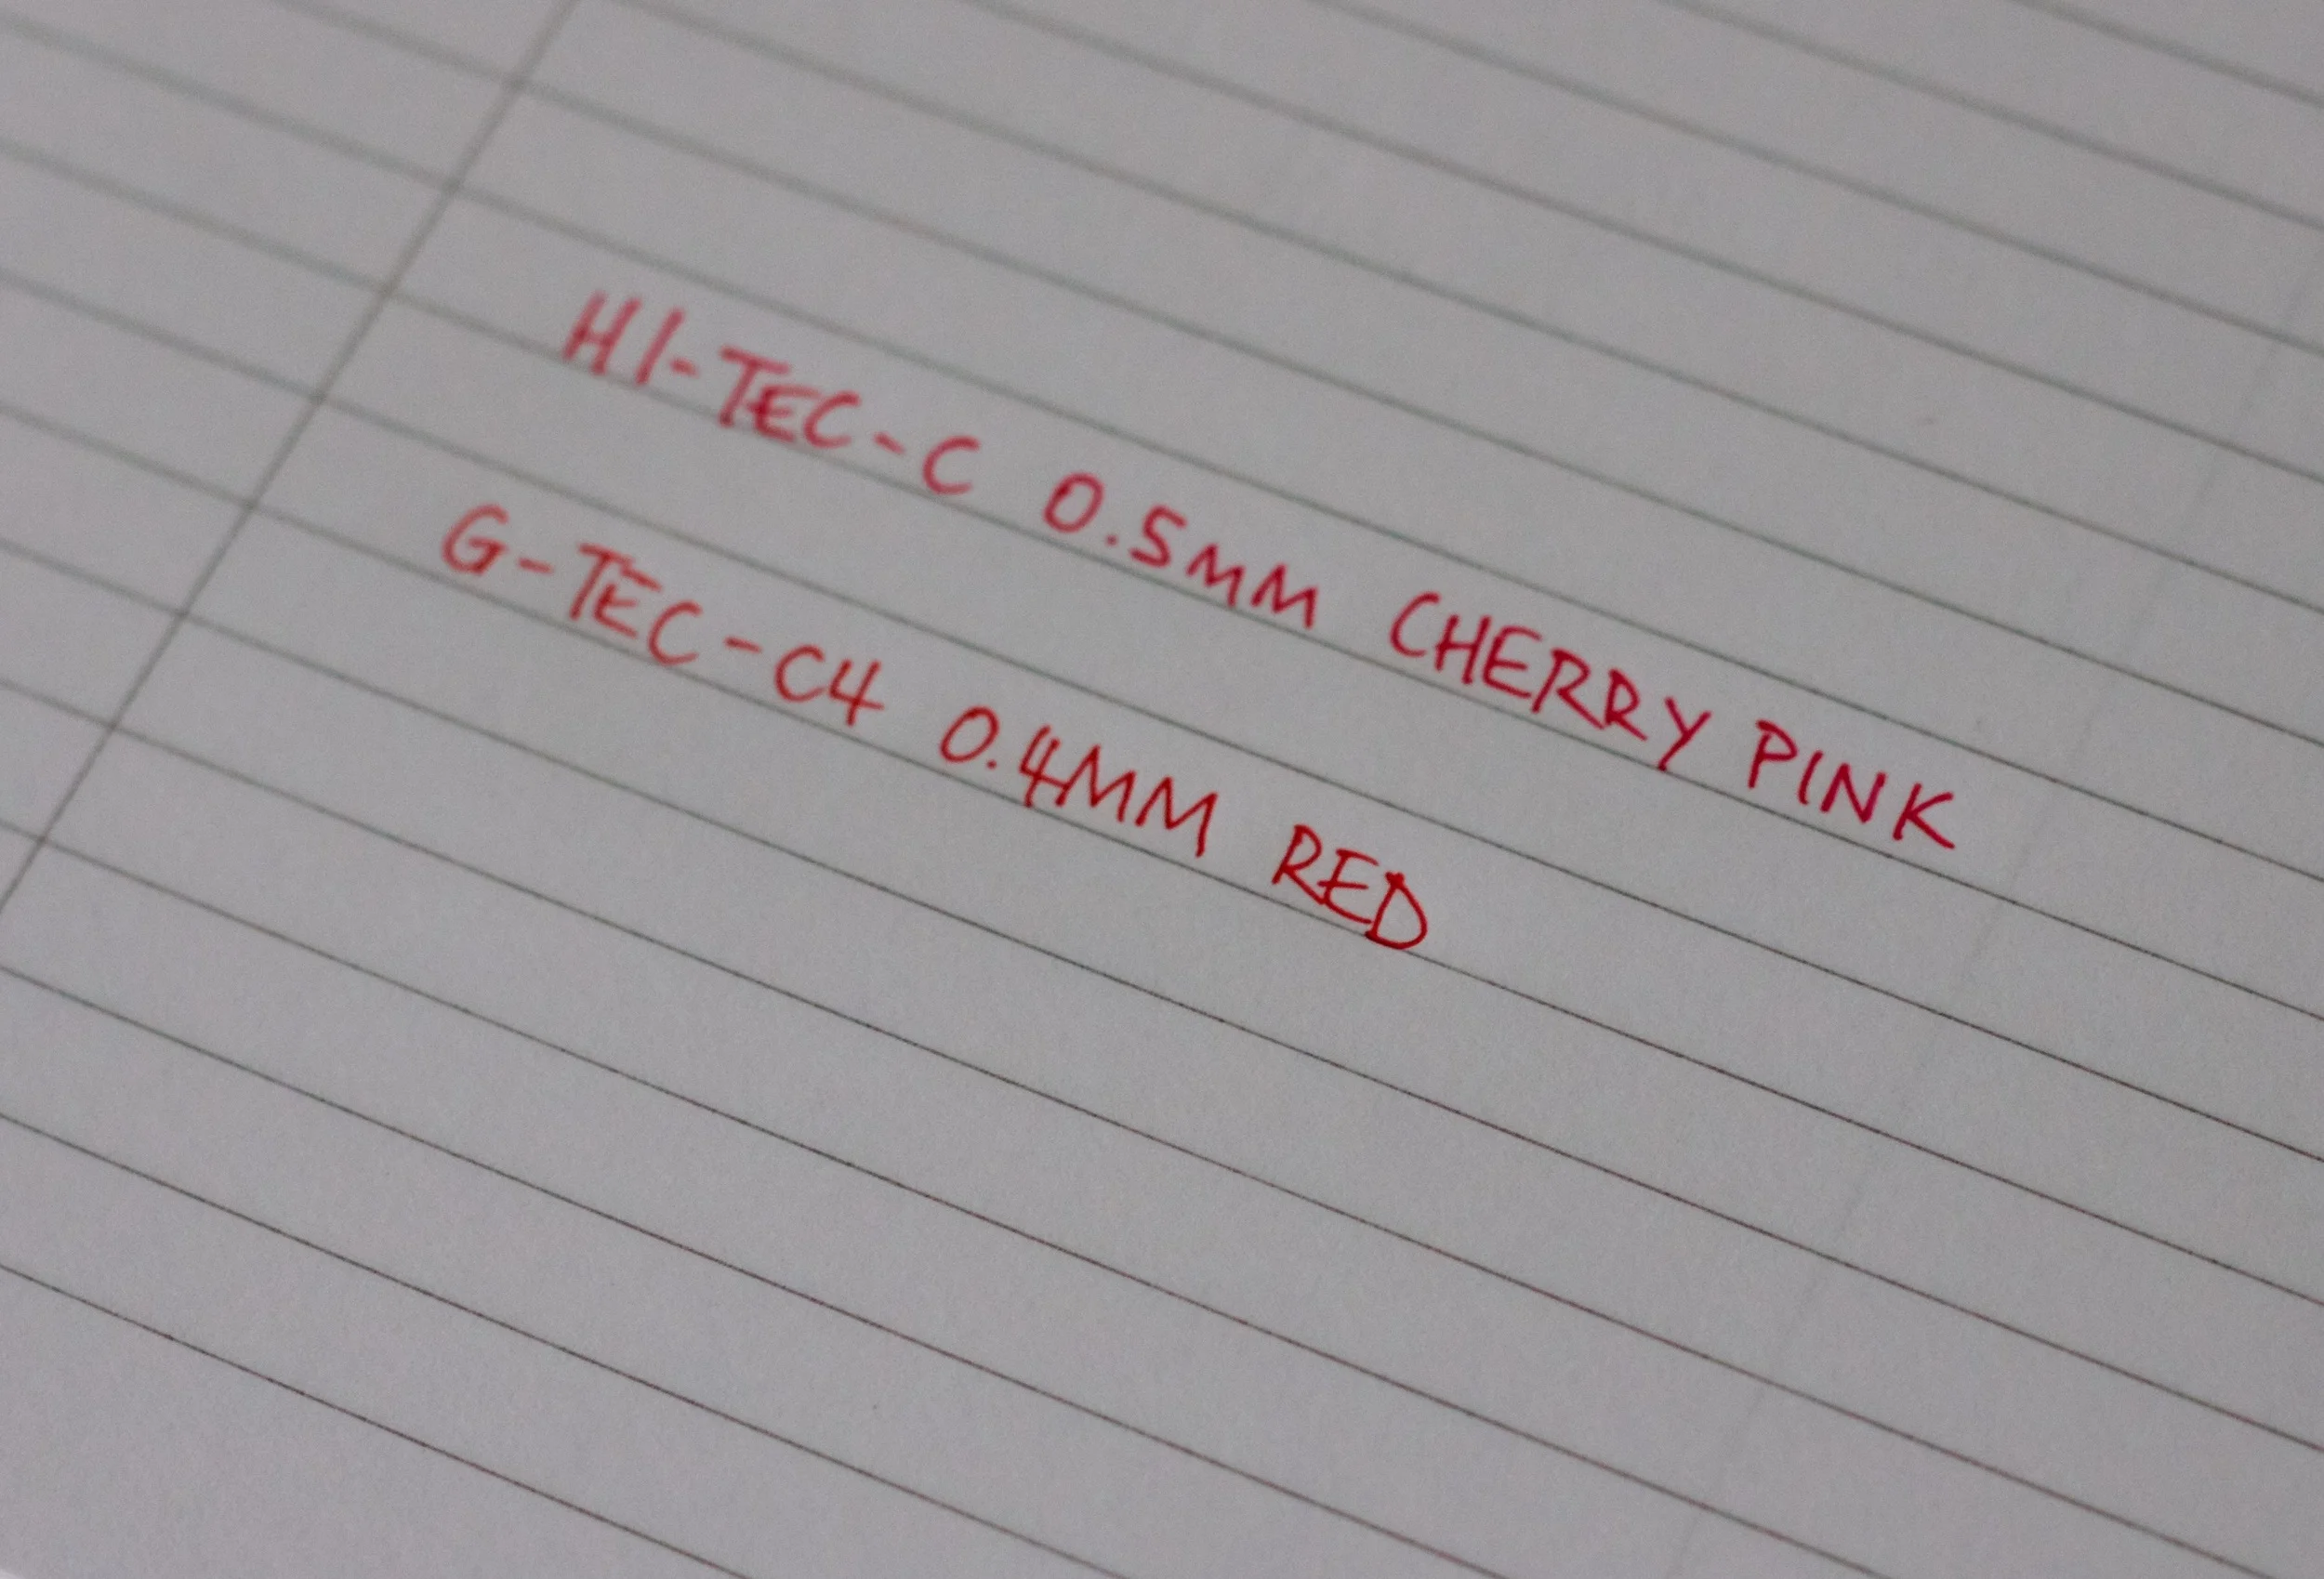 HI-TEC-C 0.5MM CHERRY PINK
G-TEC-C4 0.4MM RED